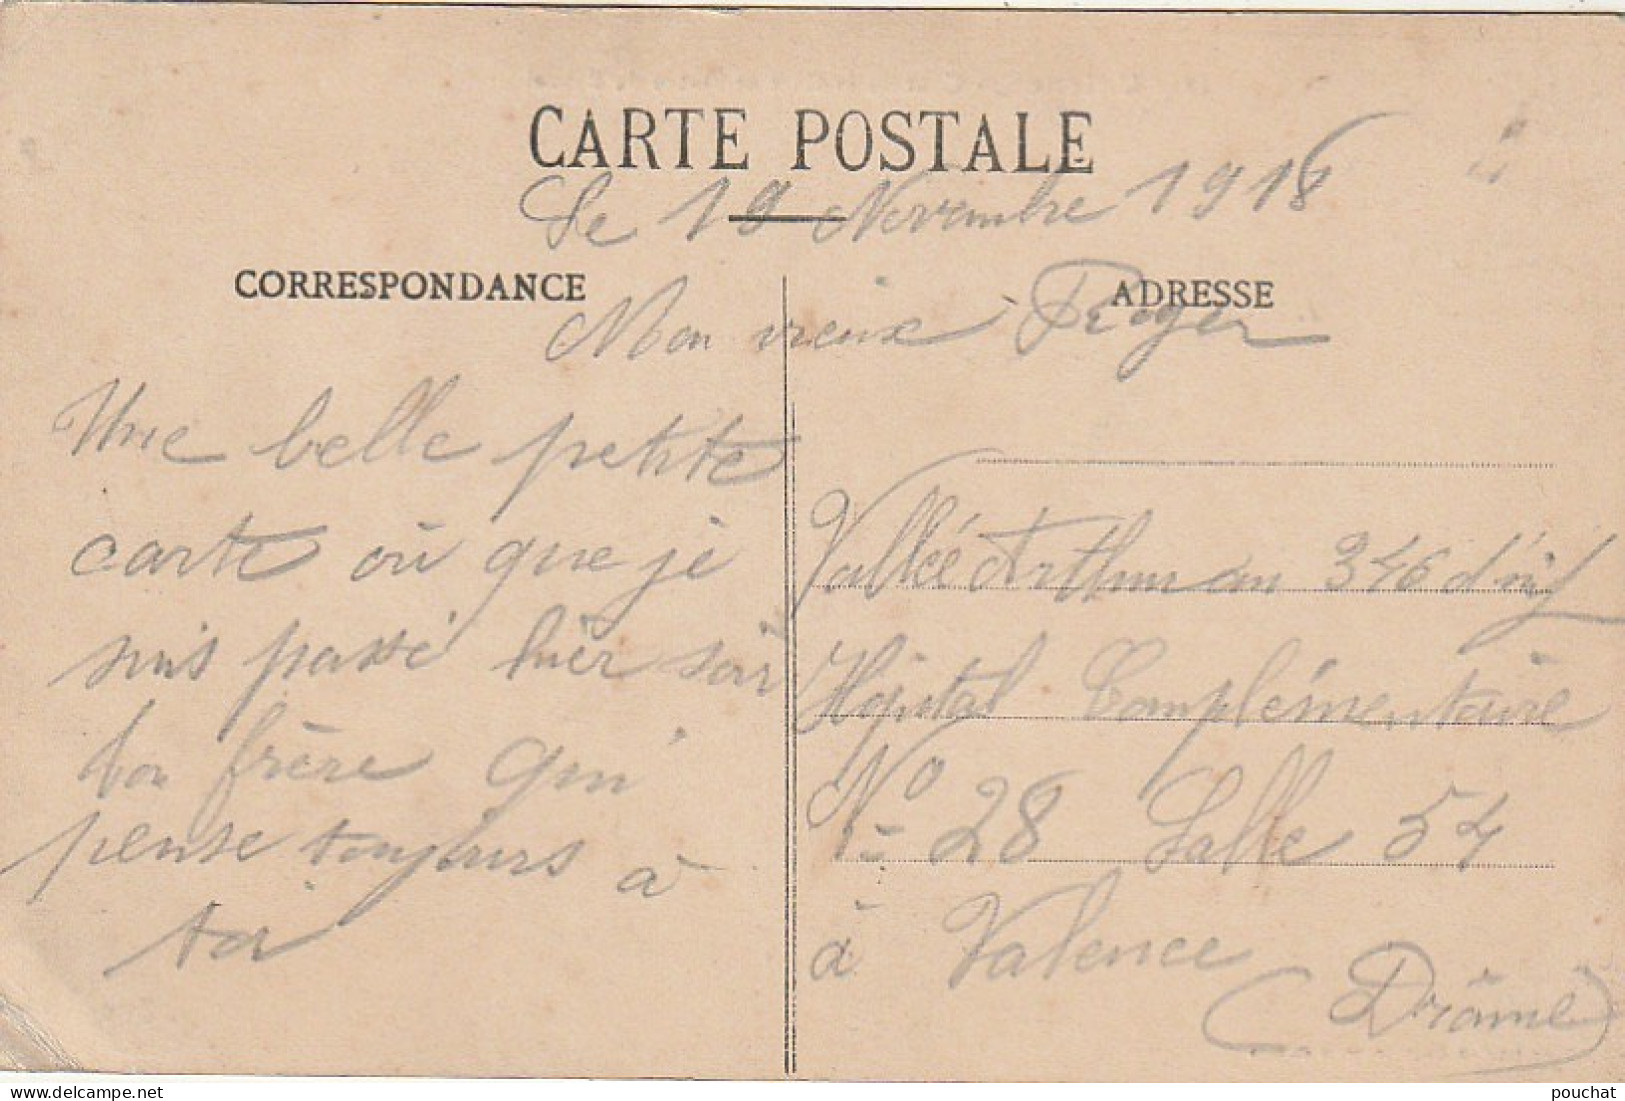 CARTE POSTALE
Le 19 Novembre 1918
CORRESPONDANCE
ADRESSE
Mon vieux Roger
Une belle petite
carte où que je
suis passé hier soir
ton frère qui
pense toujours à
toi
Vallée Arthur au 346 d'inf
Hôpital Complémentaire
No 28 Salle 54
à Valence
(Drôme)
pouchat